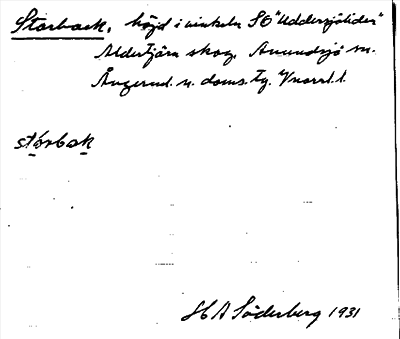 Storback, höjd i vinkeln SO "Uddersjöliden"
Aldertjärn skog, Anundsjö sn.
Ångerml. n. doms. Tg. Vnorrl. l.
stórbak
H A Söderberg 1931